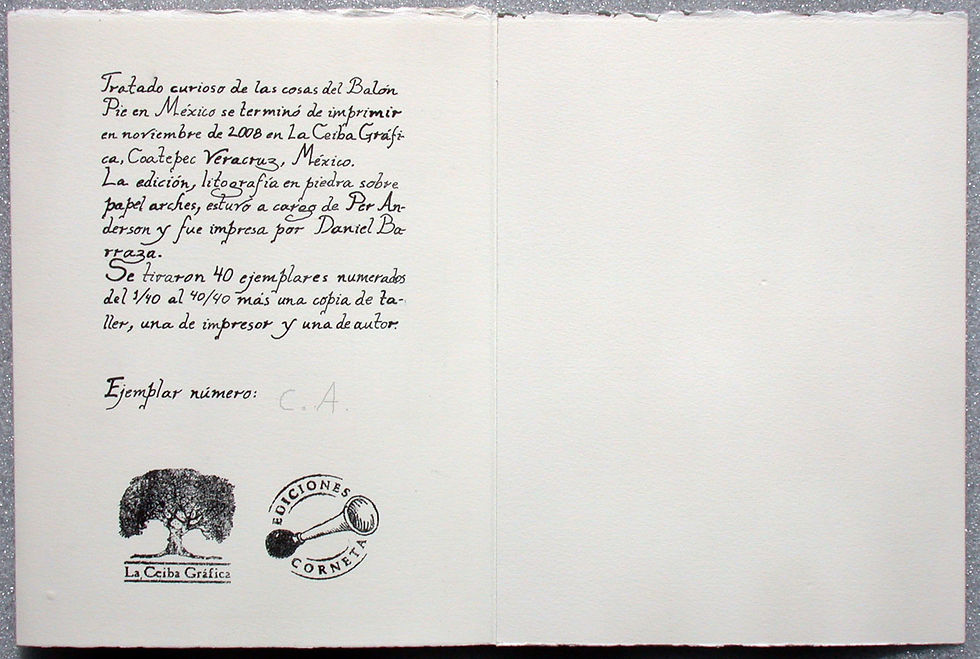 Tratado curioso de las cosas del Balón
Pie en México se terminó de imprimir
en noviembre de 2008 en La Ceiba Gráfi-
ca, Coatepec Veracruz, México.
La edición, litografía en piedra sobre
papel arches, estuvo a cargo de Per An-
derson y fue impresa por Daniel Ba-
rraza.
Se tiraron 40 ejemplares numerados
del 1/40 al 40/40 más una copia de ta-
ller, una de impresor y una de autor.
Ejemplar número: C. A.
La Ceiba Gráfica
EDICIONES
CORNETA